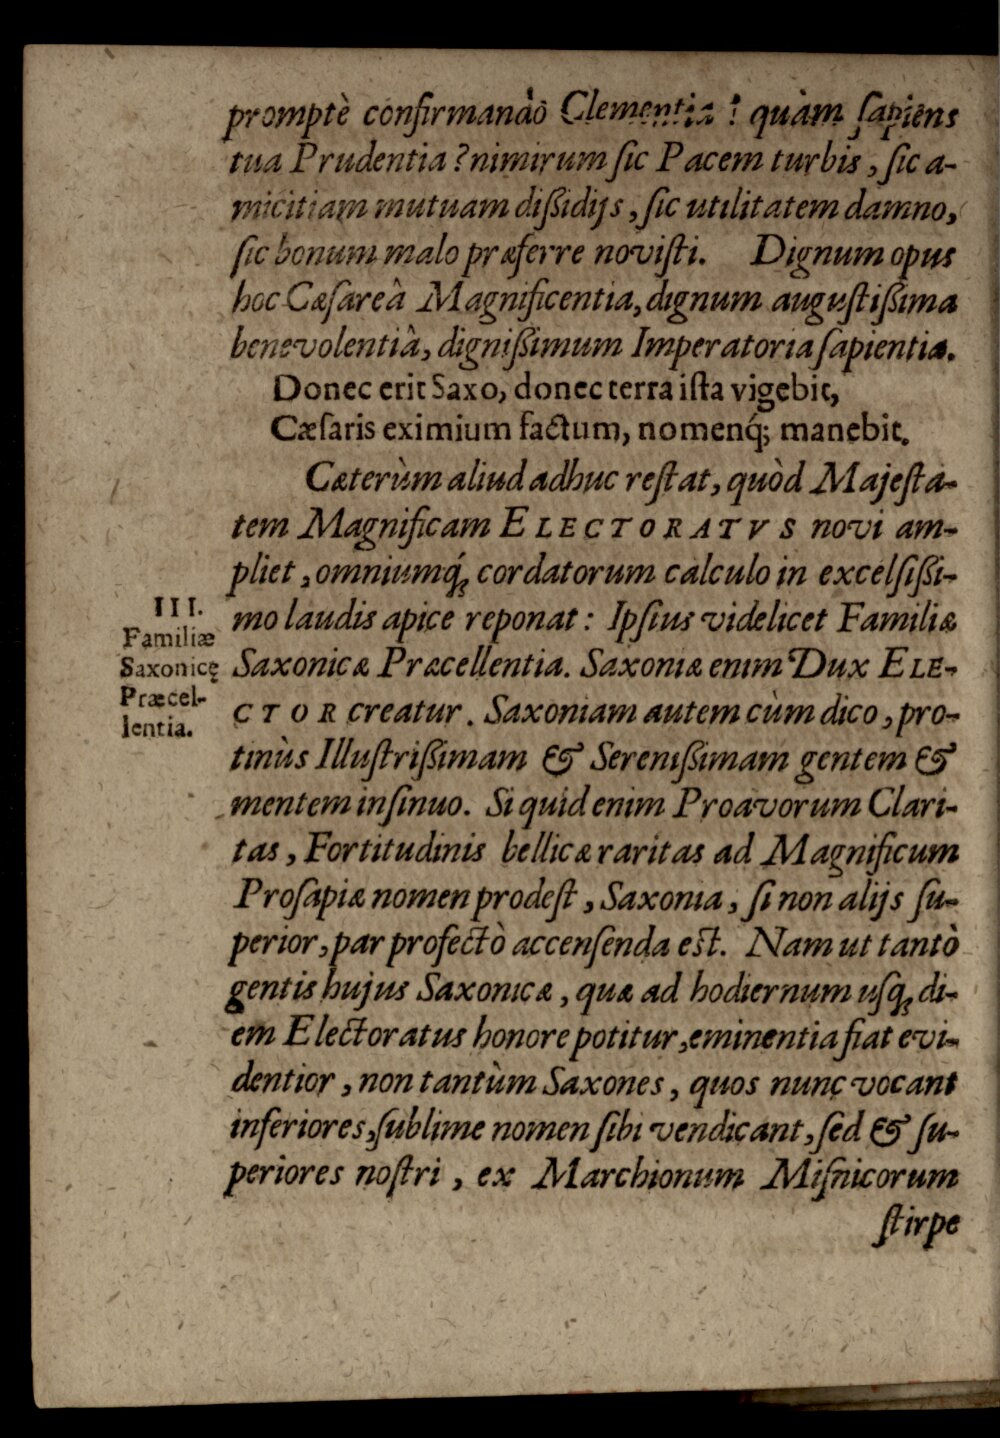 promptè confirmando Clementia ? quàm ſapiens
tua Prudentia ? nimirum ſic Pacem turbis, ſic a-
micitiam mutuam diſſidijs, ſic utilitatem damno,
ſic bonum malo præferre noviſti. Dignum opus
hoc Cæſareâ Magnificentia, dignum auguſtiſſima
benevolentiâ, digniſſimum Imperatoria ſapientia.
Donec erit Saxo, donec terra iſta vigebit,
Cæſaris eximium factum, nomenq́; manebit.
Cæterùm aliud adhuc reſtat, quòd Majeſta-
tem Magnificam ELECTORATVS novi am-
pliet, omniumq́ꝫ cordatorum calculo in excelſiſſi-
mo laudis apice reponat : Ipſius videlicet Familiæ
Saxonicæ Præcellentia. Saxoniæ enim Dux ELE-
CTOR creatur. Saxoniam autem cùm dico, pro-
tinùs Illuſtriſſimam & Sereniſſimam gentem &
mentem inſinuo. Si quid enim Proavorum Clari-
tas, Fortitudinis bellicæ raritas ad Magnificum
Proſapiæ nomen prodeſt, Saxonia, ſi non alijs ſu-
perior, par profectò accenſenda eſt. Nam ut tantò
gentis hujus Saxonicæ, quæ ad hodiernum uſqꝫ di-
em Electoratus honore potitur, eminentia fiat evi-
dentior, non tantùm Saxones, quos nunc vocant
inferiores, ſublime nomen ſibi vendicant, ſed & ſu-
periores noſtri, ex Marchionum Miſnicorum
ſtirpe
III.
Familiæ
Saxonicę
Præcel-
lentia.